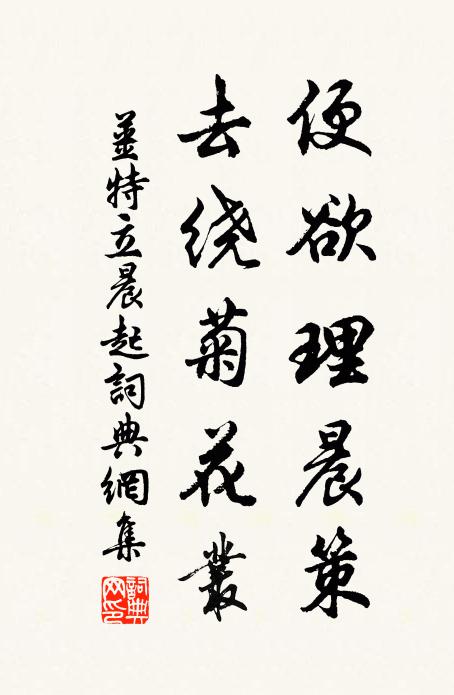 便欲理晨策
去绕菊花叢
姜特立晨起詞典網集
詞典网印